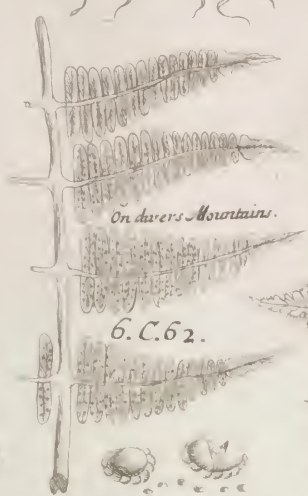 On divers Mountains.
6. C. 62.